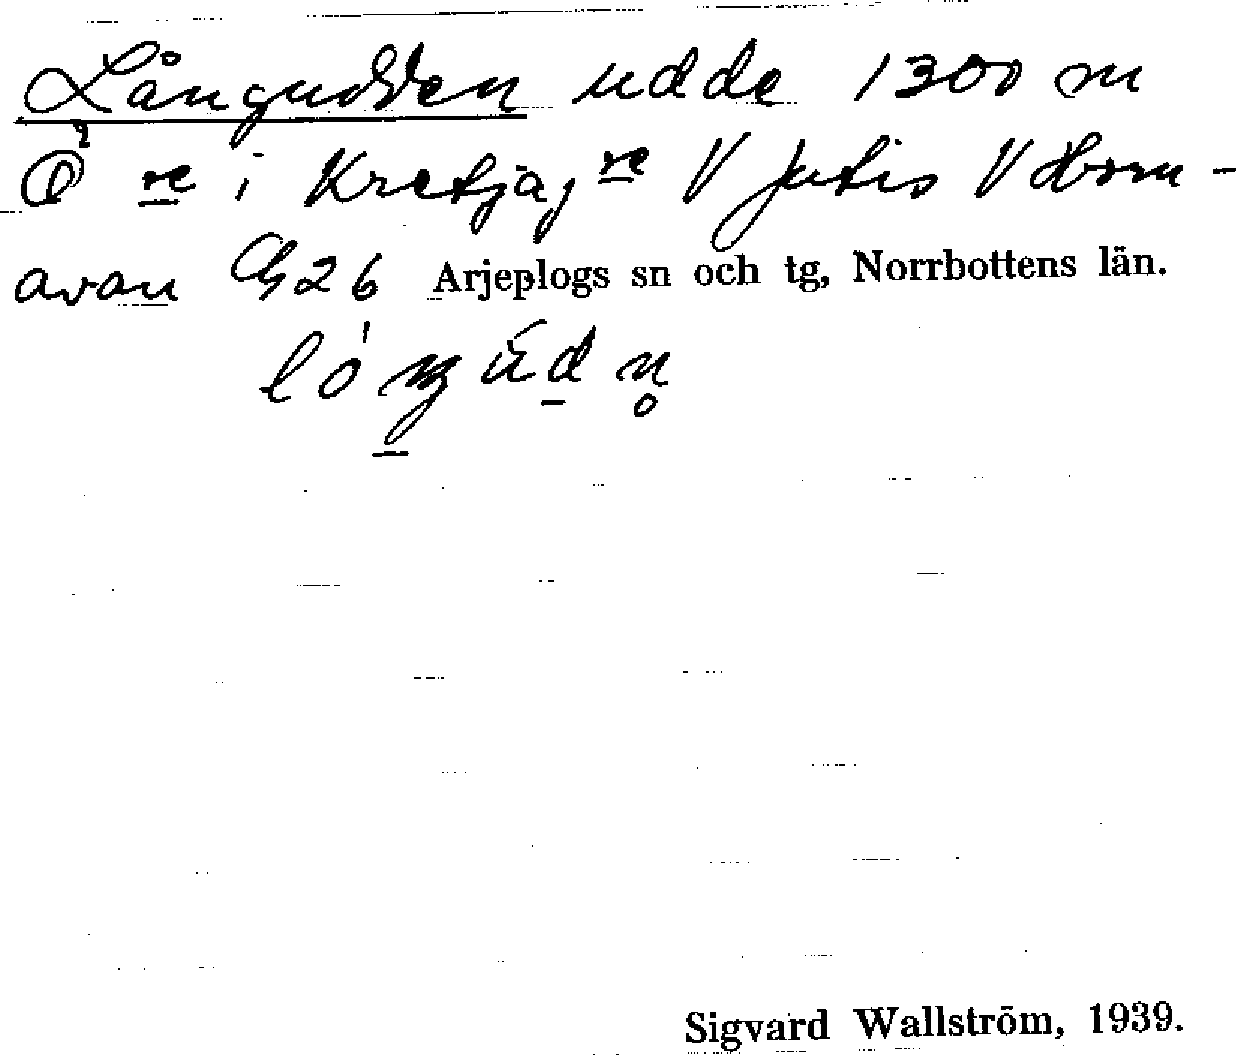 Långudden udde 1300 m
Ö re i Kretja, re V Jutis V Horn-
avan G26 Arjeplogs sn och tg, Norrbottens län.
Sigvard Wallström, 1939.